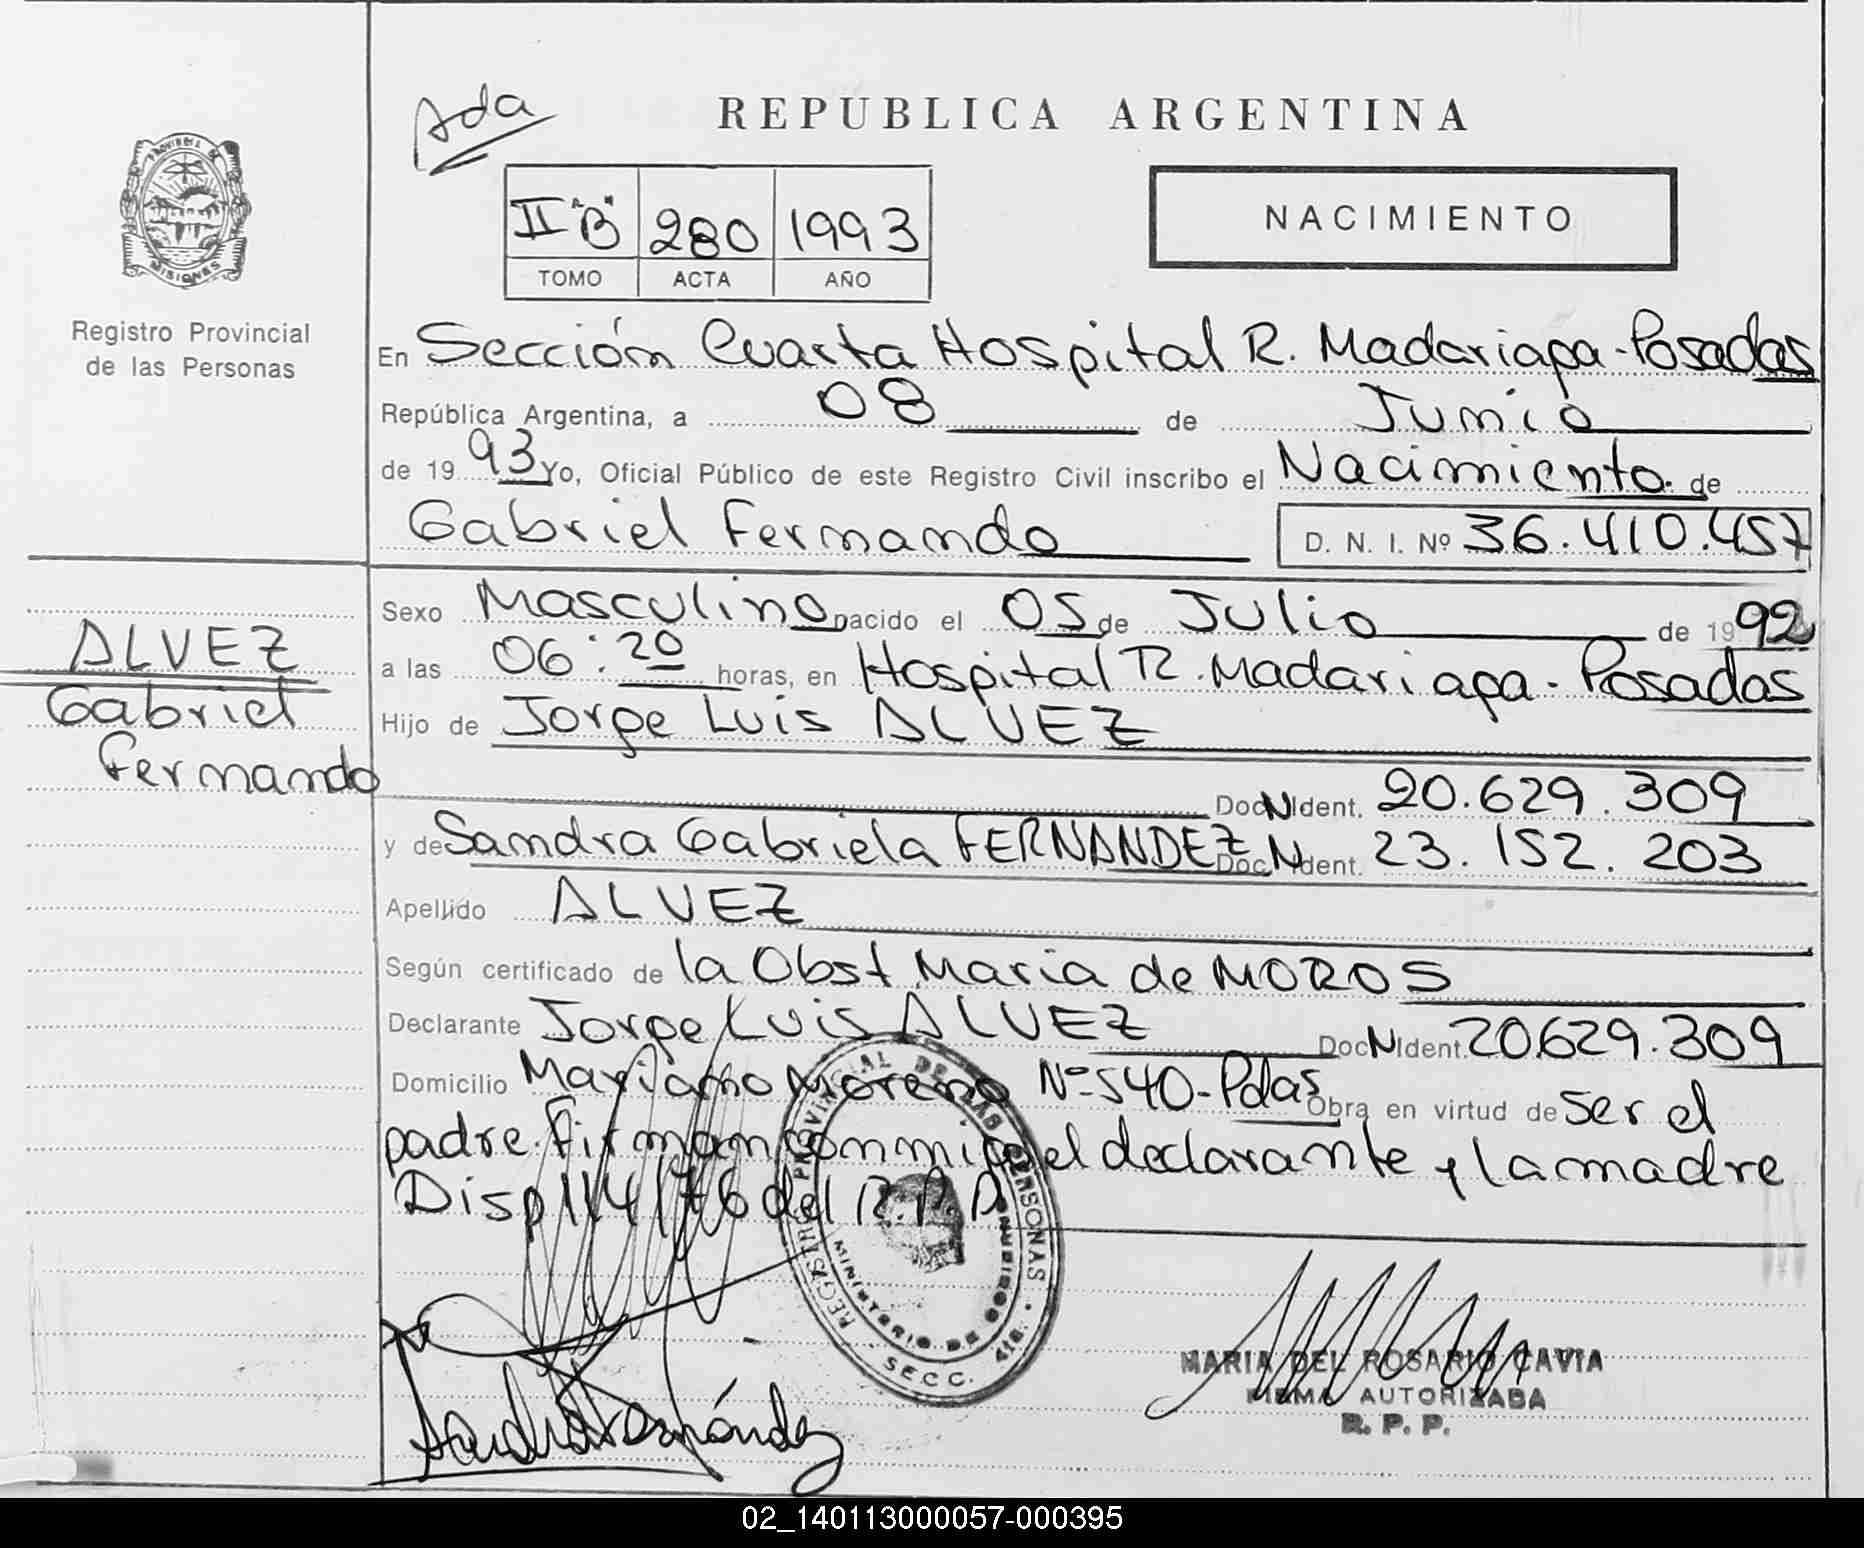 Ada
REPUBLICA ARGENTINA
PROVINCIA DE
MISIONES
II "B" 280 1993
TOMO ACTA AÑO
NACIMIENTO
Registro Provincial
de las Personas
En Sección Cuarta Hospital R. Madariaga-Posadas
República Argentina, a 08 de Junio
de 1993 Yo, Oficial Público de este Registro Civil inscribo el Nacimiento de
Gabriel Fernando D. N. I. Nº 36.410.457
Sexo Masculino nacido el 05 de Julio de 1992
ALVEZ
Gabriel
Fernando
a las 06:20 horas, en Hospital R. Madariaga - Posadas
Hijo de Jorge Luis ALVEZ
Doc N Ident. 20.629.309
y de Sandra Gabriela FERNANDEZ Doc N Ident. 23.152.203
Apellido ALVEZ
Según certificado de la Obst Maria de MOROS
Declarante Jorge Luis ALVEZ Doc N Ident. 20.629.309
Domicilio Mariano Moreno Nº 540-Pdas Obra en virtud de ser el
padre. Firman conmigo el declarante y la madre
Disp 114/76 del R.P.P.
REGISTRO PROVINCIAL DE LAS PERSONAS
MINISTERIO DE GOBIERNO
SECC. 4ta.
MARIA DEL ROSARIO CAVIA
FIRMA AUTORIZADA
R. P. P.
Sandra Fernández
02_140113000057-000395